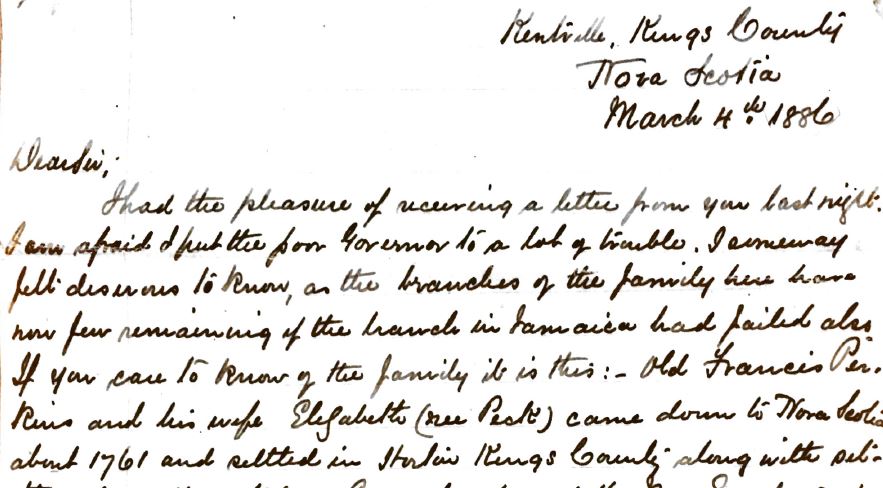 Kentville, Kings County
Nova Scotia
March 4th. 1886
Dear Sir;
I had the pleasure of receiving a letter from you last night.
I am afraid I put the poor Governor to a lot of trouble. I someway
felt desirous to know, as the branches of the family here have
now few remaining if the branch in Jamaica had failed also
If you care to know of the family it is this:- Old Francis Per-
kins and his wife Elizabeth (nee Peck) came down to Nova Scotia
about 1761 and settled in Horton Kings County along with set-